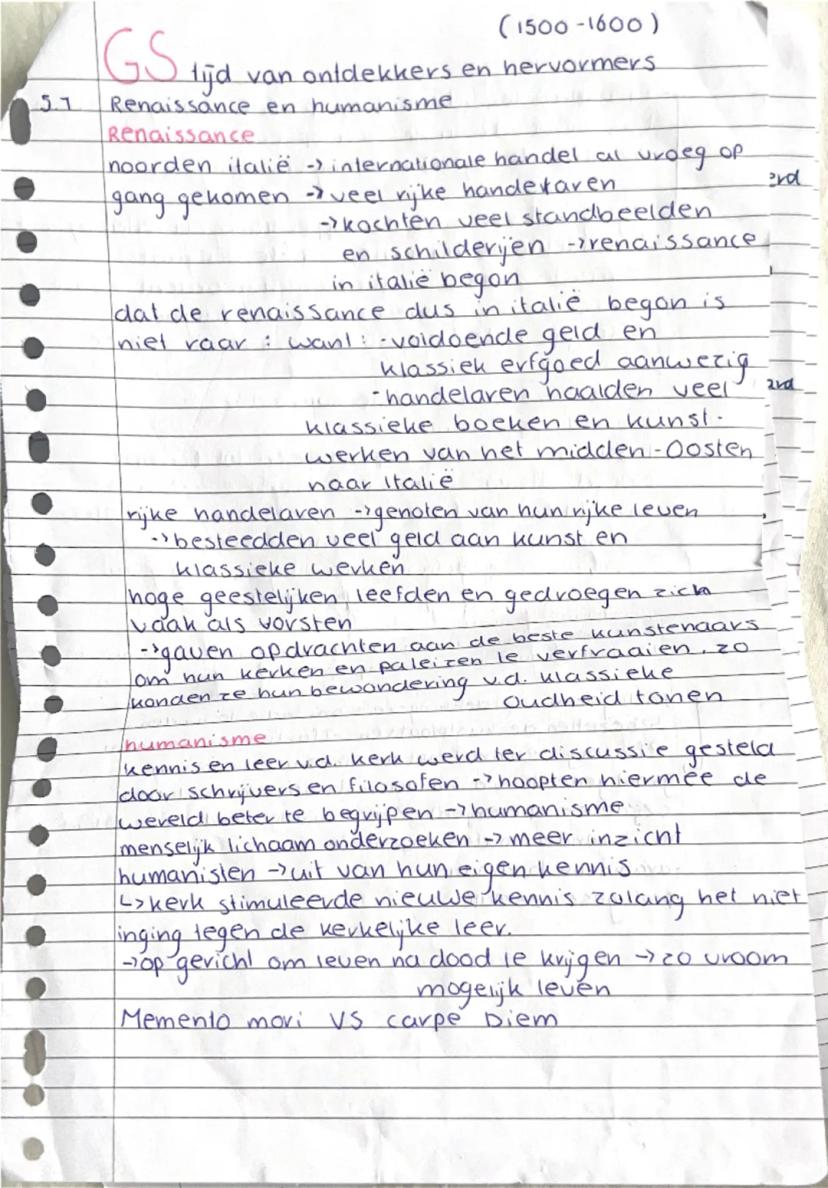 (1500-1600)
GS tijd van ontdekkers en hervormers
5.1 Renaissance en humanisme
Renaissance
noorden italië -> internationale handel al vroeg op
gang gekomen -> veel rijke handelaren
-> kochten veel standbeelden
en schilderijen -> renaissance
in italië begon
dat de renaissance dus in italië begon is
niet raar : want : - voldoende geld en
klassiek erfgoed aanwezig
- handelaren haalden veel
klassieke boeken en kunst-
werken van het midden-Oosten
naar italië
rijke handelaren -> genoten van hun rijke leven
-> besteedden veel geld aan kunst en
klassieke werken
hoge geestelijken leefden en gedroegen zich
vaak als vorsten
-> gaven opdrachten aan de beste kunstenaars
om hun kerken en paleizen te verfraaien. zo
konden ze hun bewondering v.d. klassieke
Oudheid tonen
humanisme
kennis en leer v.d. kerk werd ter discussie gesteld
door schrijvers en filosofen -> hoopten hiermee de
wereld beter te begrijpen -> humanisme
menselijk lichaam onderzoeken -> meer inzicht
humanisten -> uit van hun eigen kennis
↳ kerk stimuleerde nieuwe kennis zolang het niet
inging tegen de kerkelijke leer.
-> op gericht om leven na dood te krijgen -> zo vroom
mogelijk leven
Memento mori VS carpe Diem